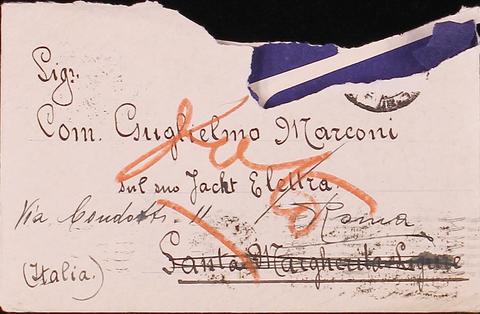 Sigr.
Com. Guglielmo Marconi
sul suo Jacht Elettra.
Via Condotti 11 Roma
Santa Margherita Ligure
(Italia.)